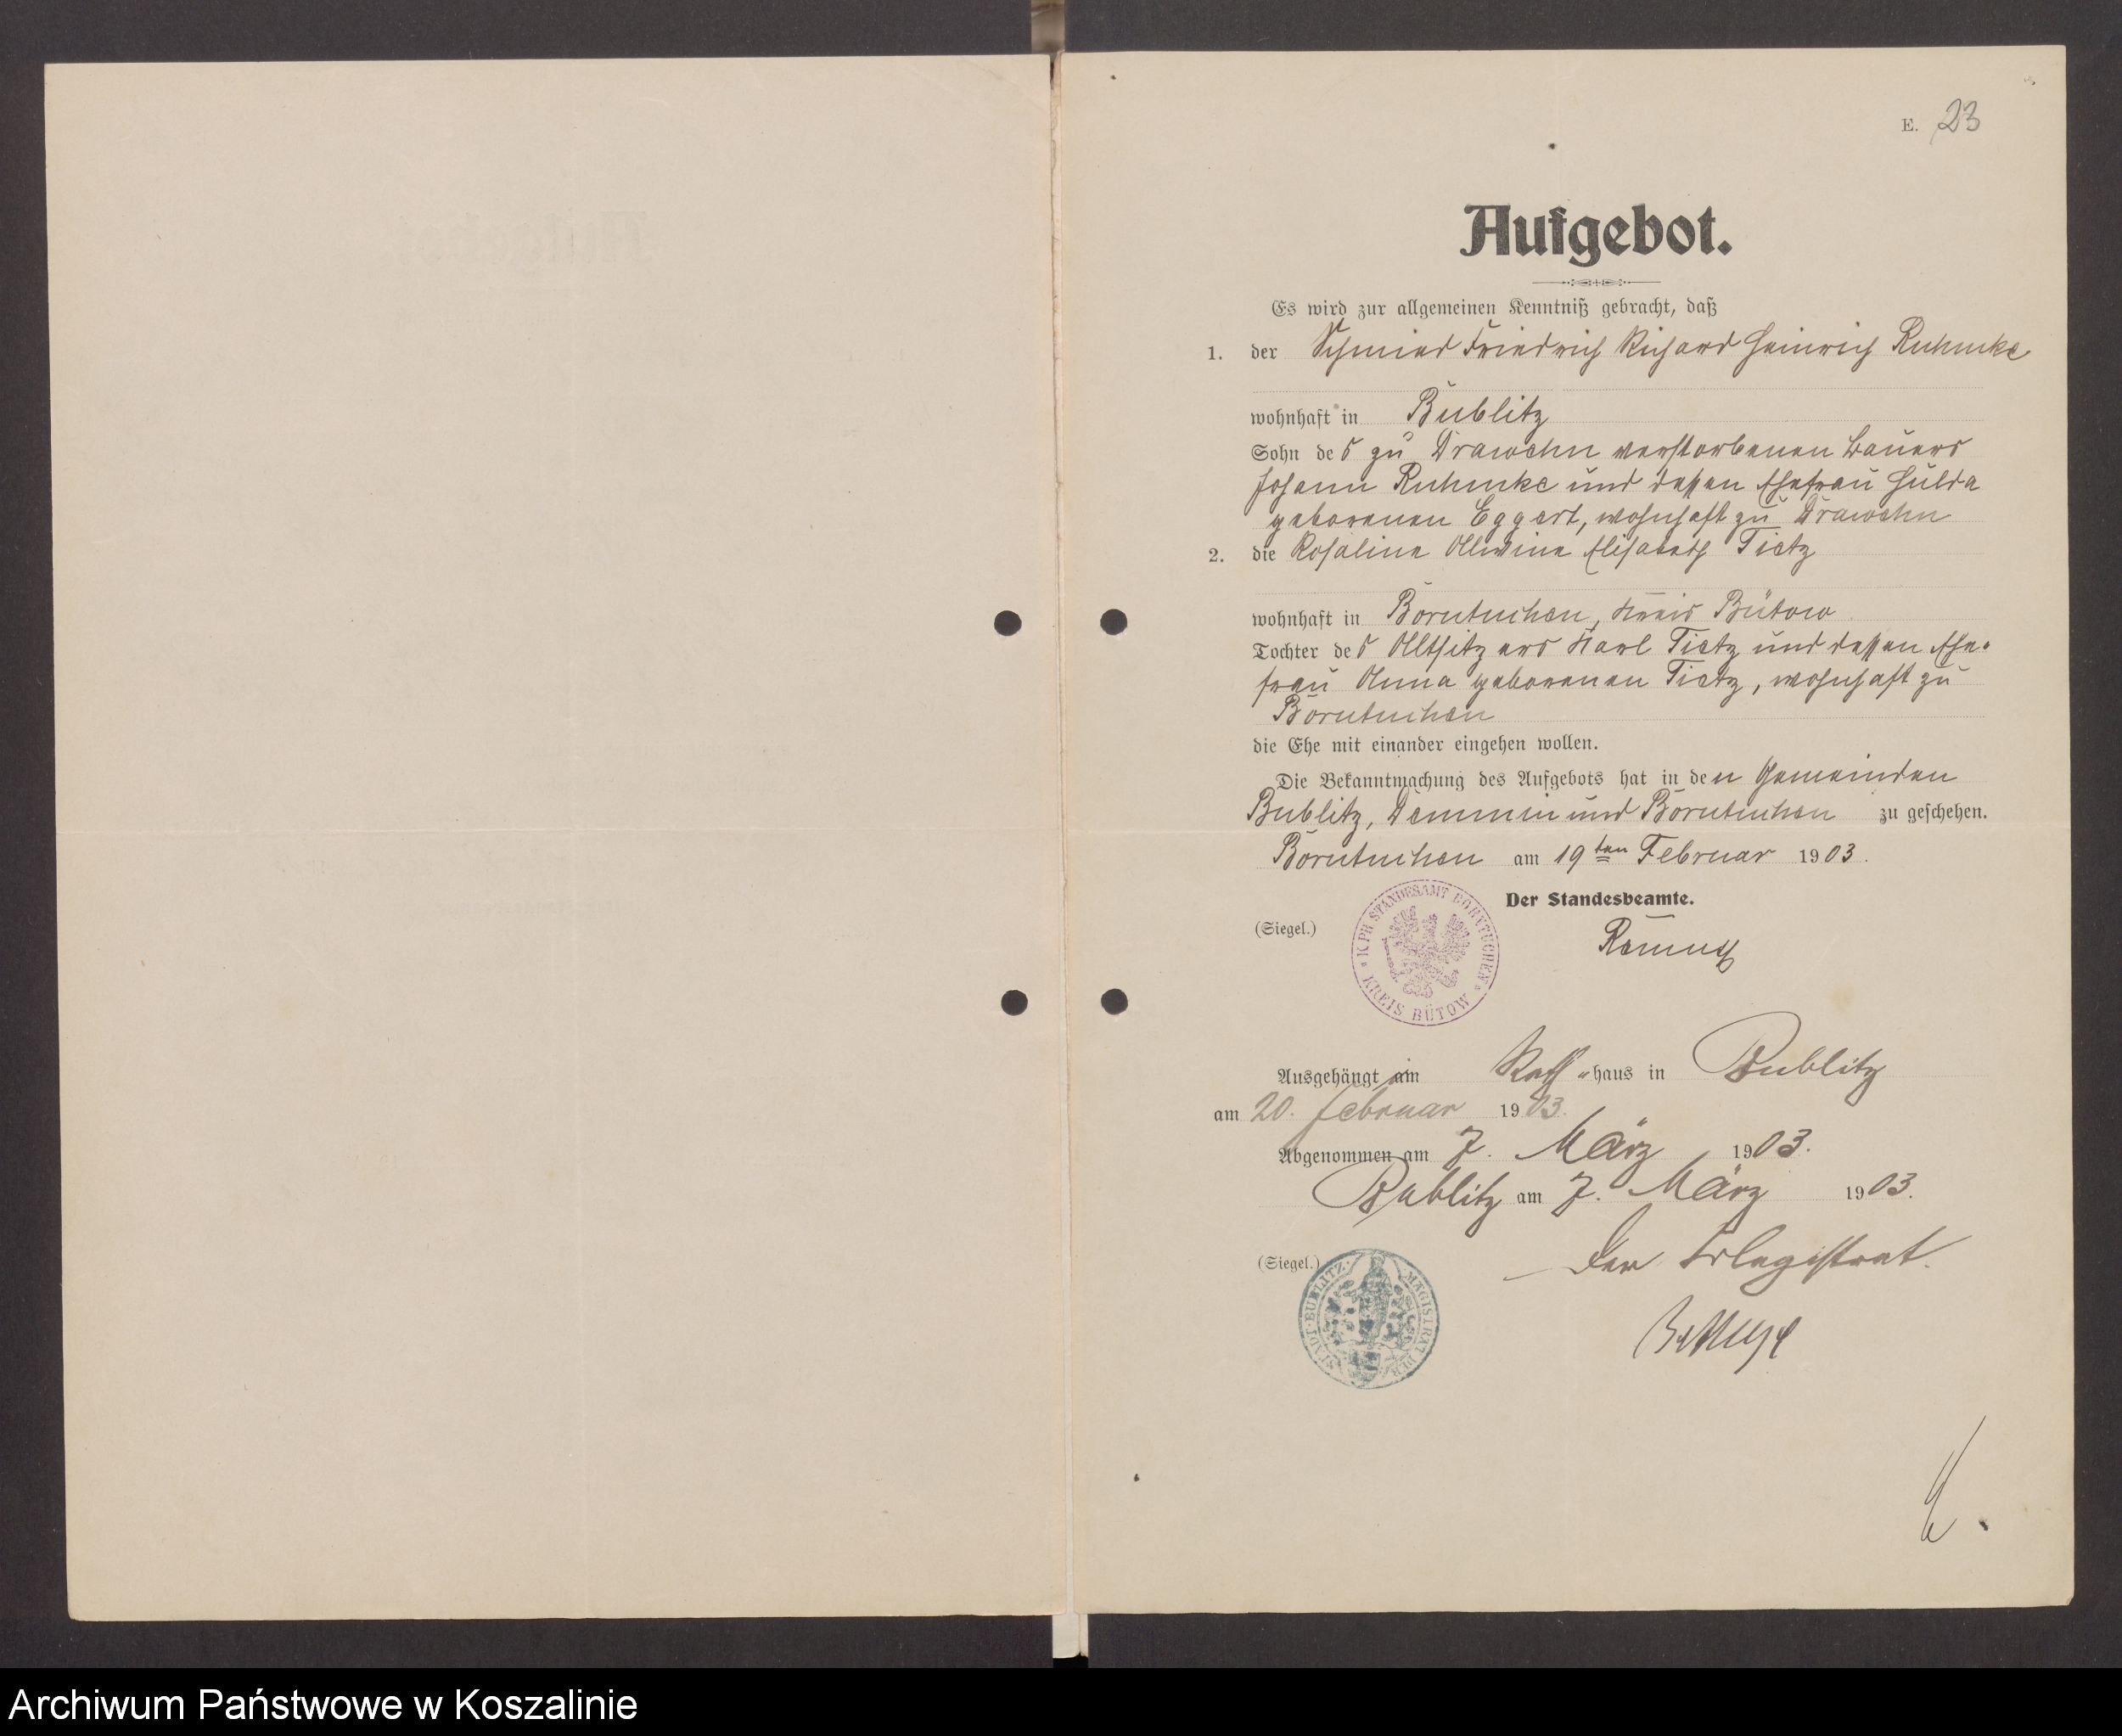 E. 23
Aufgebot.
Es wird zur allgemeinen Kenntniß gebracht, daß
1. der Schmied Friedrich Richard Heinrich Ruhmke
wohnhaft in Bublitz
Sohn des zu Drawehn verstorbenen Bauers
Johann Ruhmke und dessen Ehefrau Hulda
geborenen Eggert, wohnhaft zu Drawehn
2. die Rosaline Alwine Elisabeth Tietz
wohnhaft in Borntuchen, Kreis Bütow
Tochter des Altsitzers Karl Tietz und dessen Ehe-
frau Anna geborenen Tietz, wohnhaft zu
Borntuchen
die Ehe mit einander eingehen wollen.
Die Bekanntmachung des Aufgebots hat in den Gemeinden
Bublitz, Demmin und Borntuchen zu geschehen.
Borntuchen am 19ten Februar 1903.
Der Standesbeamte.
(Siegel.)
K. PR. STANDESAMT BORNTUCHEN
KREIS BÜTOW
Ausgehängt am Rath-haus in Bublitz
am 20. Februar 1903.
Abgenommen am 7. März 1903.
Bublitz am 7. März 1903.
(Siegel.)
Der Magistrat.
MAGISTRAT DER STADT BUBLITZ
Archiwum Państwowe w Koszalinie